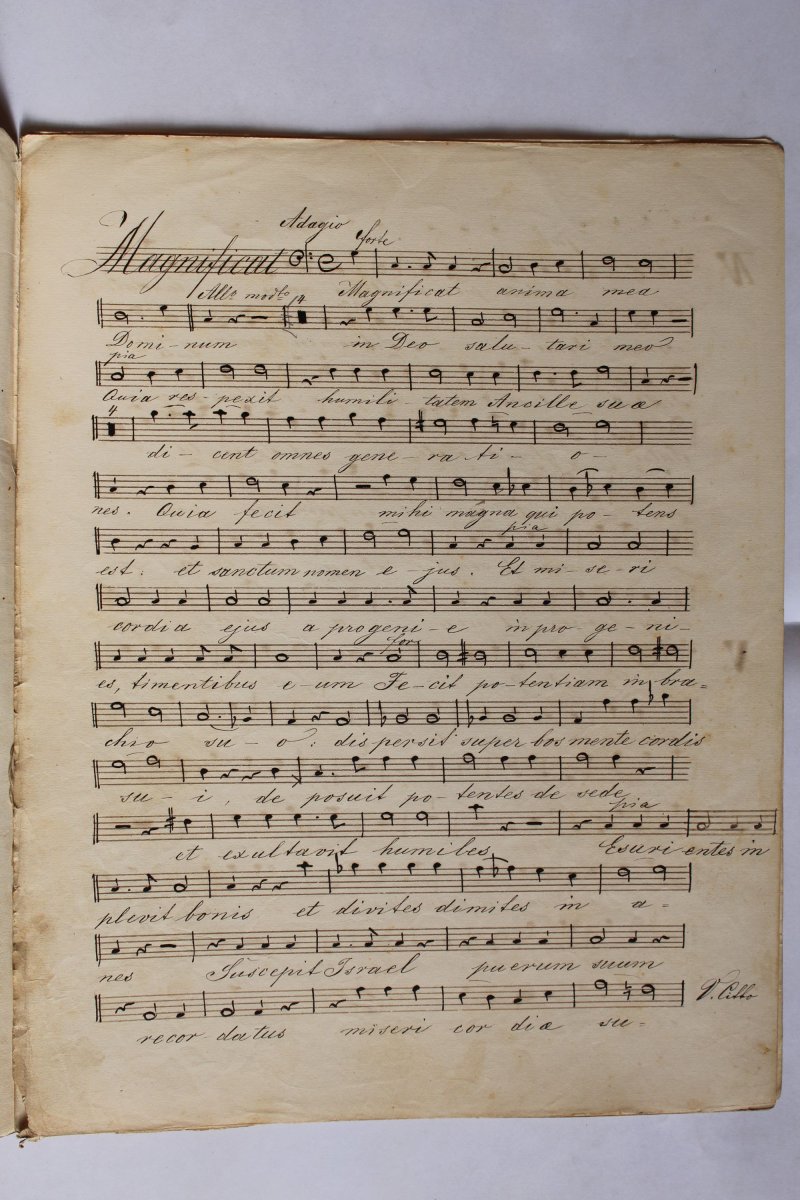 Adagio
Magnificat forte
Magnificat anima mea
All.º mod.to 14
Do mi - num in Deo salu - tari meo
pia
Quia res - pexit humili - tatem Ancille suæ
4
di - cent omnes gene - ra - ti - o -
nes. Quia fecit mihi magna qui po - tens
pia
est: et sanctum nomen e - jus. Et mi - se - ri
cordia ejus a progeni - e in pro - ge - ni -
for
es, timentibus e - um Fe - cit po - tentiam in bra =
chio su - o: dispersit super bos mente cordis
su - i, de posuit po - tentes de sede
pia
et exultavit humiles Esuri entes in
plevit bonis et divites dimites in a -
nes Suscepit Israel puerum suum
V. Citto
recor datus miseri cor diæ su =